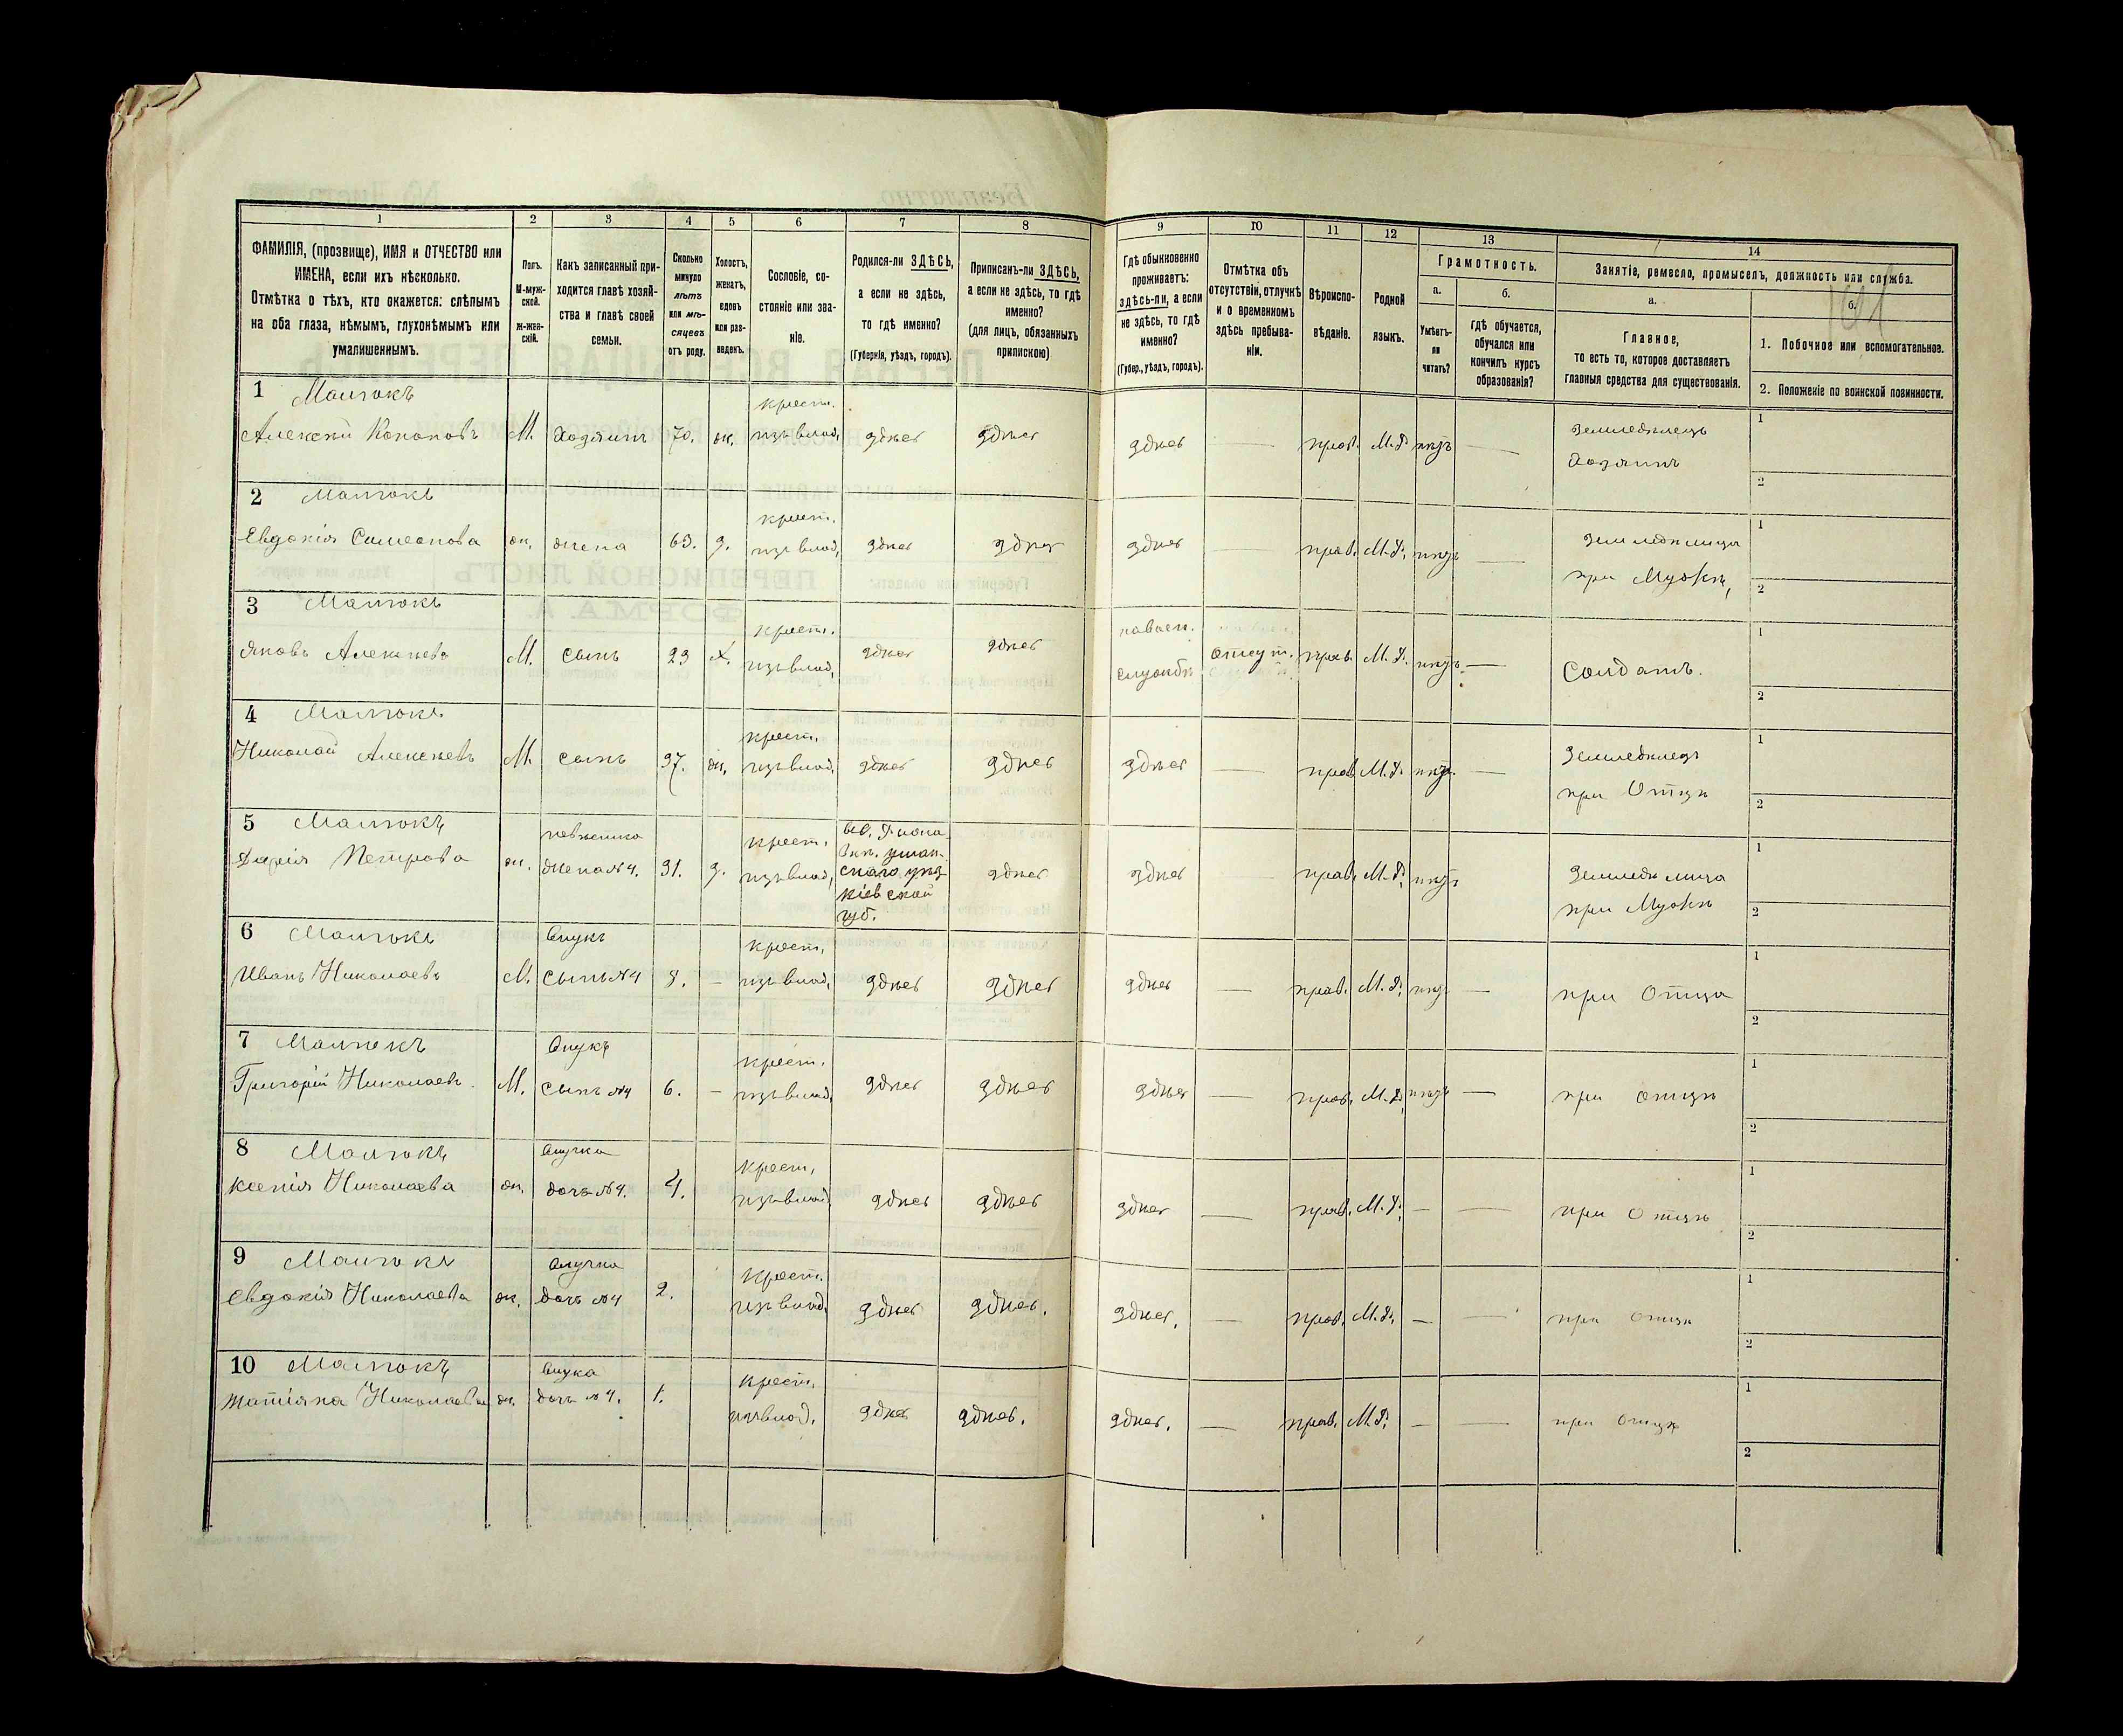 1 2 3 4 5 6 7 8 9 10 11 12 13 14
ФАМИЛІЯ, (прозвище), ИМЯ и ОТЧЕСТВО или
ИМЕНА, если ихъ нѣсколько.
Отмѣтка о тѣхъ, кто окажется: слѣпымъ
на оба глаза, нѣмымъ, глухонѣмымъ или
умалишеннымъ.
Полъ.
М-муж-
ской.
Ж-жен-
скій.
Какъ записанный при-
ходится главѣ хозяй-
ства и главѣ своей
семьи.
Сколько
минуло
лѣтъ
или мѣ-
сяцевъ
отъ роду.
Холостъ,
женатъ,
вдовъ
или раз-
веденъ.
Сословіе, со-
стояніе или зва-
ніе.
Родился-ли ЗДѢСЬ,
а если не здѣсь,
то гдѣ именно?
(Губернія, уѣздъ, городъ).
Приписанъ-ли ЗДѢСЬ,
а если не здѣсь, то гдѣ
именно?
(для лицъ, обязанныхъ
припискою)
Гдѣ обыкновенно
проживаетъ:
здѣсь-ли, а если
не здѣсь, то гдѣ
именно?
(Губер., уѣздъ, городъ).
Отмѣтка объ
отсутствіи, отлучкѣ
и о временномъ
здѣсь пребыва-
ніи.
Вѣроиспо-
вѣданіе.
Родной
языкъ.
Грамотность.
а.
Умѣетъ-
ли
читать?
б.
Гдѣ обучается,
обучался или
кончилъ курсъ
образованія?
Занятіе, ремесло, промыселъ, должность или служба.
а.
Главное,
то есть то, которое доставляетъ
главныя средства для существованія.
б.
101
1. Побочное или вспомогательное.
2. Положеніе по воинской повинности.
1 Малюкъ
Алексѣй Кононовъ М. Хозяинъ 70. ж. крест.
изъ влад. здѣсь здѣсь здѣсь — прав. М. Р. нѣтъ — Земледѣлецъ
Хозяинъ
1
2
2 Малюкъ
Евдокія Симеонова ж. жена 63. з. крест.
изъ влад. здѣсь здѣсь здѣсь — прав. М. Р. нѣтъ — Земледѣлица
при Мужѣ
1
2
3 Малюкъ
Яковъ Алексѣевъ М. сынъ 23 х. крест.
изъ влад. здѣсь здѣсь на воен.
службѣ отсут. прав. М. Р. нѣтъ — Солдатъ.
1
2
4 Малюкъ
Николай Алексѣевъ М. сынъ 37. ж. крест.
изъ влад. здѣсь здѣсь здѣсь — прав. М. Р. нѣтъ — Земледѣлецъ
при Отцѣ
1
2
5 Малюкъ
Дарія Петрова ж. невѣстка
жена №4. 31. з. крест.
изъ влад. уман-
скаго уѣз.
Кіевской
губ. здѣсь здѣсь прав. М. Р. нѣтъ Земледѣлица
при Мужѣ
1
2
6 Малюкъ
Иванъ Николаевъ М. Внукъ
сынъ №4 8. — крест.
изъ влад. здѣсь здѣсь здѣсь — прав. М. Р. нѣтъ — при Отца
1
2
7 Малюкъ
Григорій Николаевъ М. Внукъ
сынъ №4 6. — крест.
изъ влад. здѣсь здѣсь здѣсь — прав. М. Р. нѣтъ — при отцѣ
1
2
8 Малюкъ
Ксенія Николаева ж. Внучка
дочь №4. 4. крест.
изъ влад. здѣсь здѣсь здѣсь — прав. М. Р. — — при Отцѣ
1
2
9 Малюкъ
Евдокія Николаева ж. Внучка
дочь №4 2. крест.
изъ влад. здѣсь здѣсь. здѣсь. — прав. М. Р. — — при Отцѣ
1
2
10 Малюкъ
Татіяна Николаева ж. Внука
дочь №4. 1. крест.
изъ влад. здѣсь здѣсь. здѣсь. — прав. М. Р. — — при Отцѣ
1
2